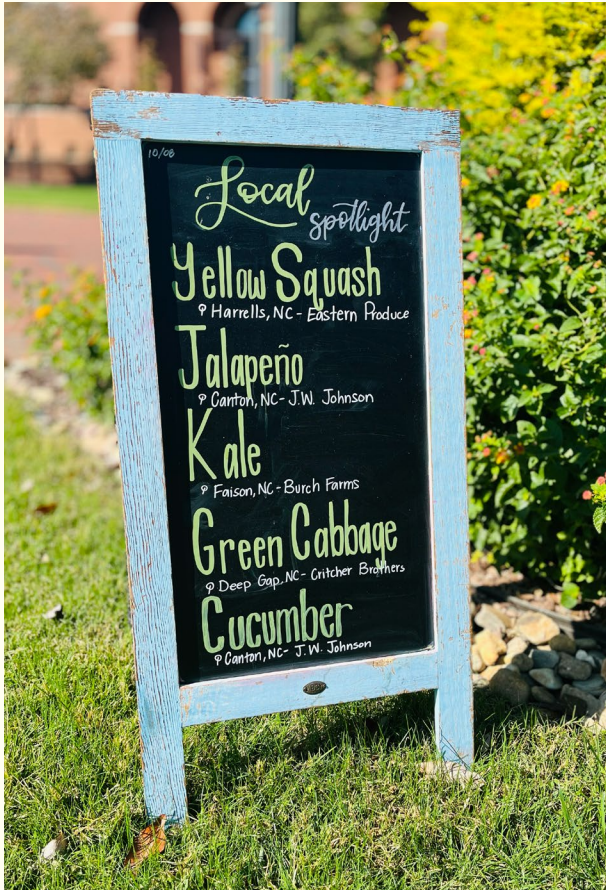 10/08
Local
spotlight
Yellow Squash
Harrells, NC - Eastern Produce
Jalapeño
Canton, NC - J.W. Johnson
Kale
Faison, NC - Burch Farms
Green Cabbage
Deep Gap, NC - Critcher Brothers
Cucumber
Canton, NC - J.W. Johnson